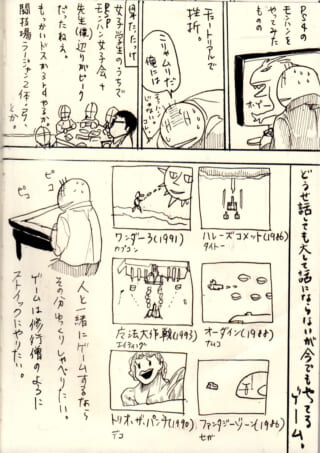 PS4の
モンハンを
やってみた
ものの
チュートリアルで
挫折。
こりゃムリだ
俺には
女子学生のうちで
モンハン女子会+
先生(僕)辺りがピーク
だったねぇ。
もっかいドスからP4やるか。
闘技場
ラージャン2体
とか。
どうせ話しても大して話にならないが今でもやってる
ゲーム。
ハレーズコメット(1986)
タイトー
ワンダー3(1991)
カプコン
オーダイン(1988)
ナムコ
魔法大作戦(1993)
エイティング
ファンタジーゾーン(1986)
セガ
トリオ・ザ・パンチ(1990)
デコ
ピコ
ピコ
人と一緒にゲームするなら
その分ゆっくりしゃべりたい。
ゲームは修行僧のように
ストイックにやりたい。